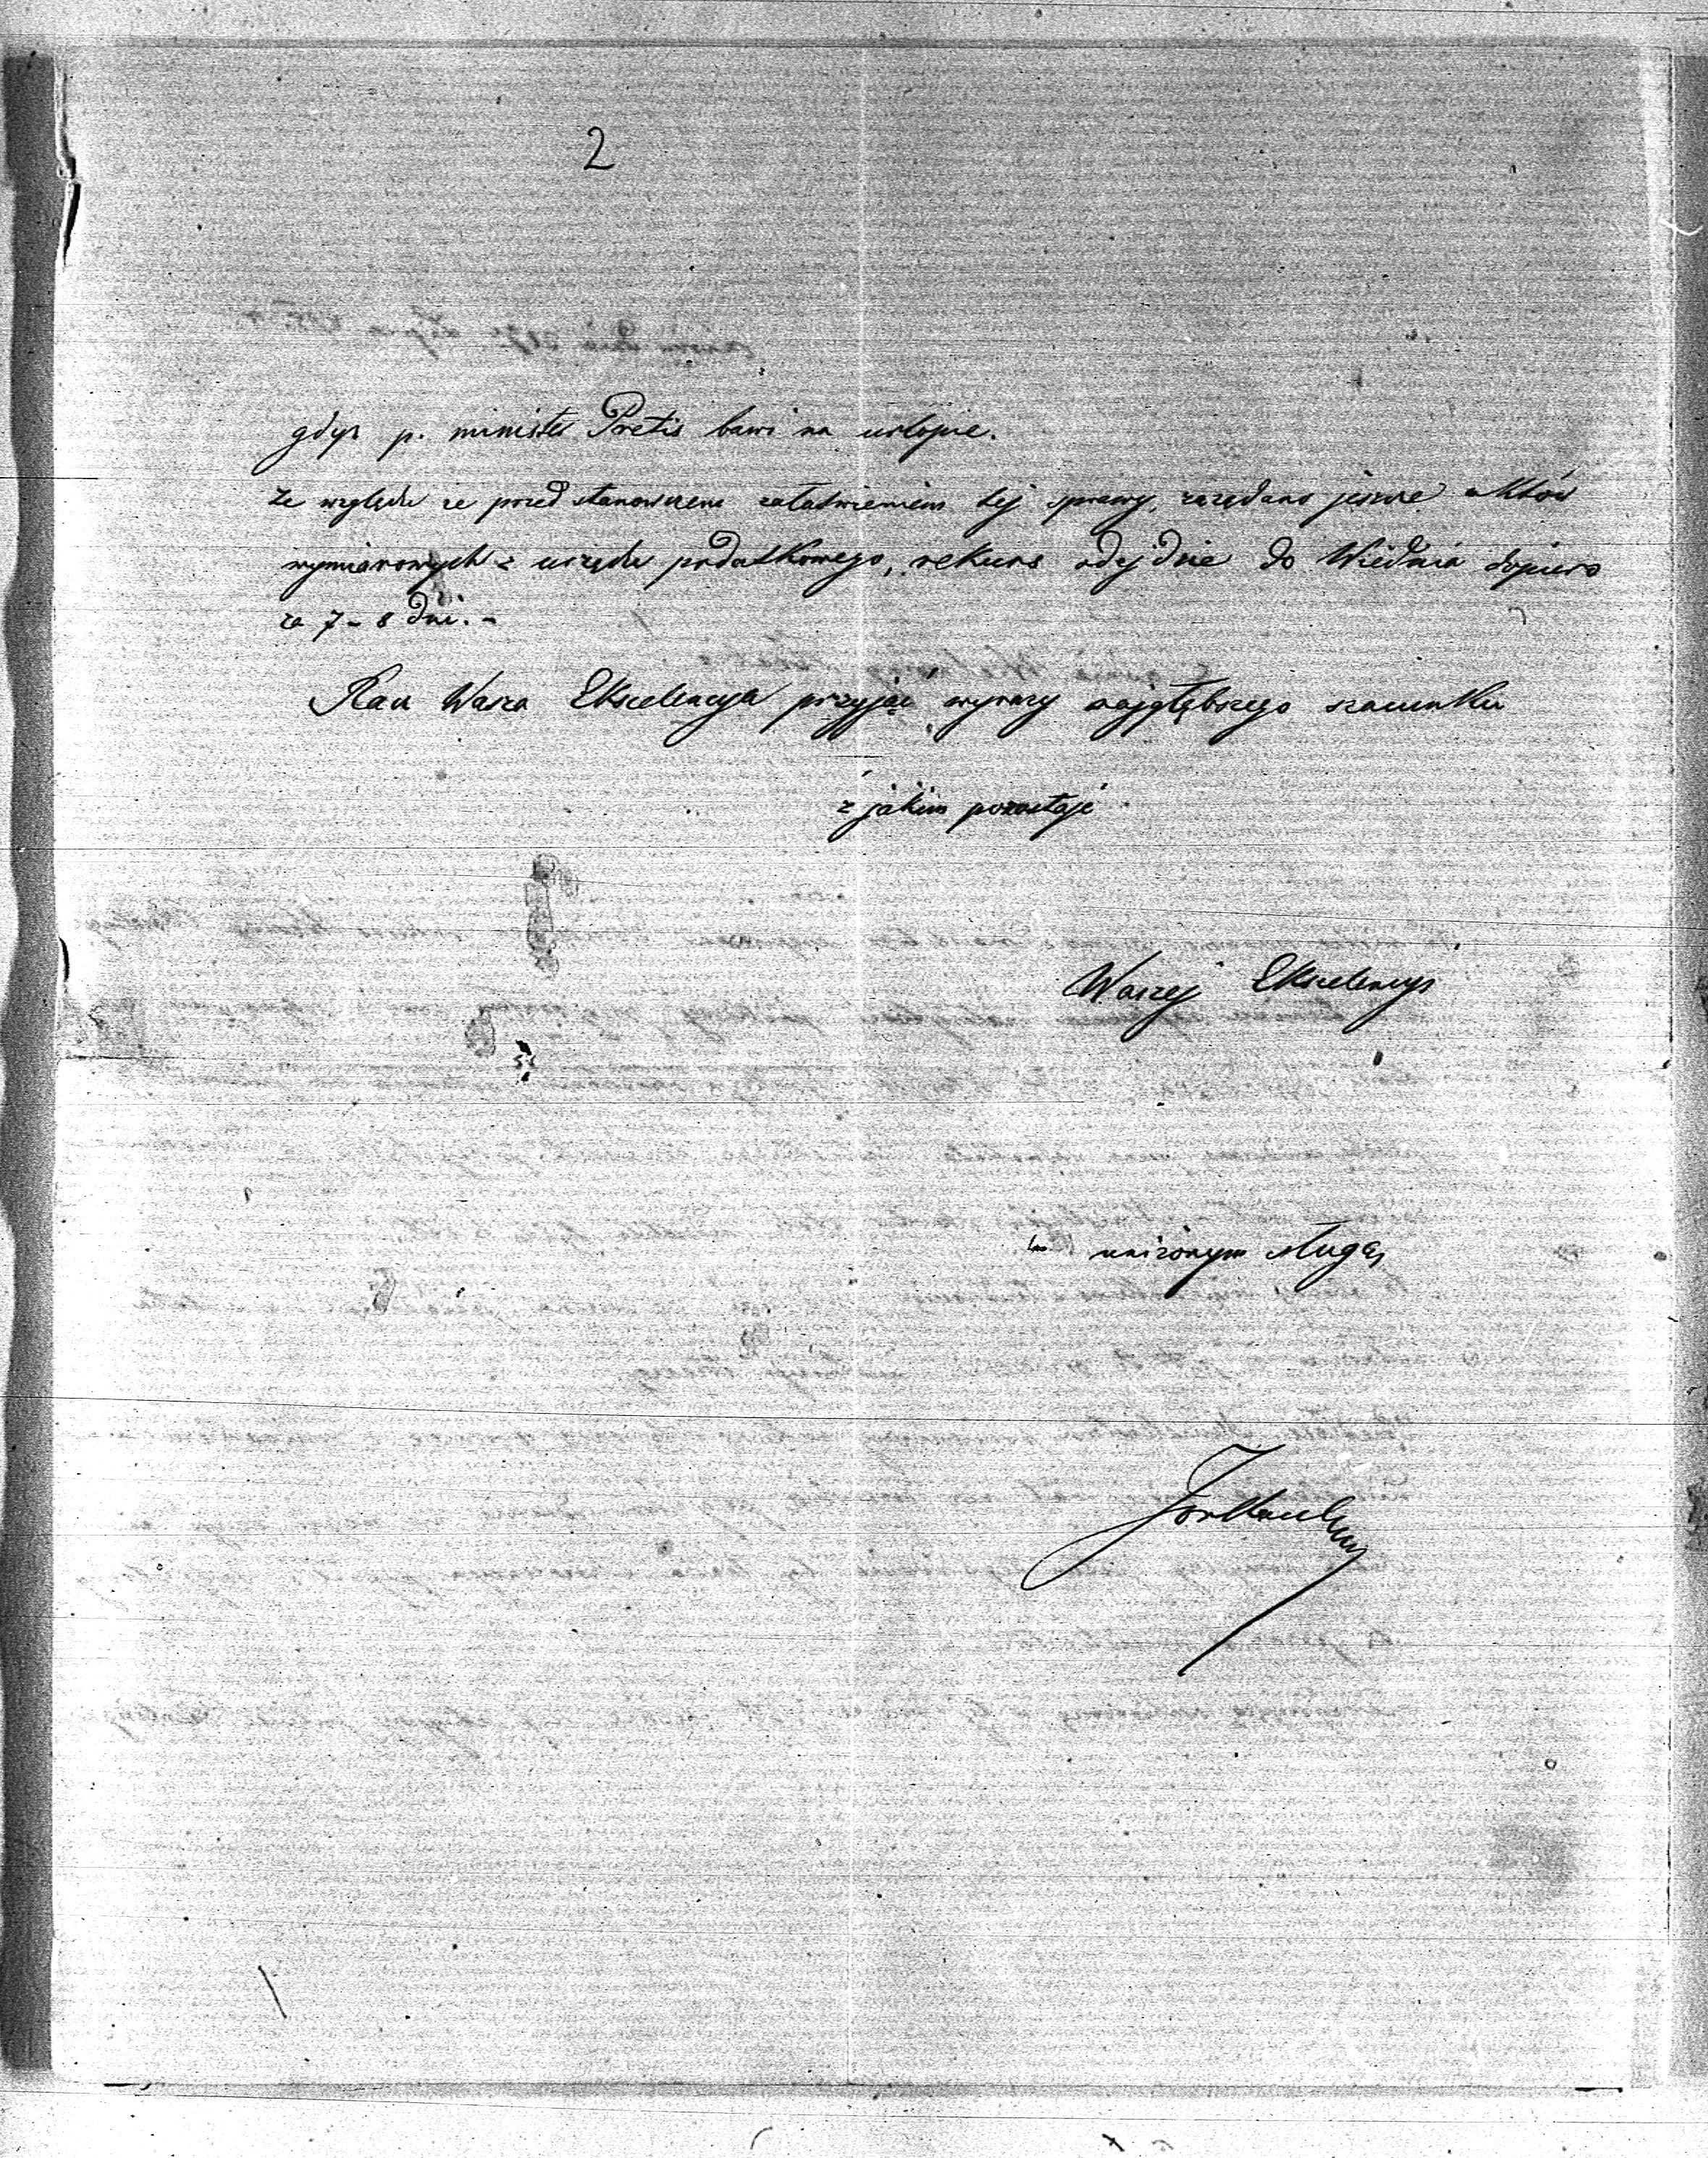 2
gdyż p. minister Pretis bawi na urlopie.
Ze względu że przed stanowczem załatwieniem tej sprawy, zażądano jeszcze aktów
wymiarowych z urzędu podatkowego, rekurs odejdzie do Wiednia dopiero
za 7 - 8 dni. -
Racz Wasza Ekscelencya przyjąć wyrazy najgłębszego szacunku
z jakim pozostaję
Waszej Ekscelencyi
uniżonym sługą,